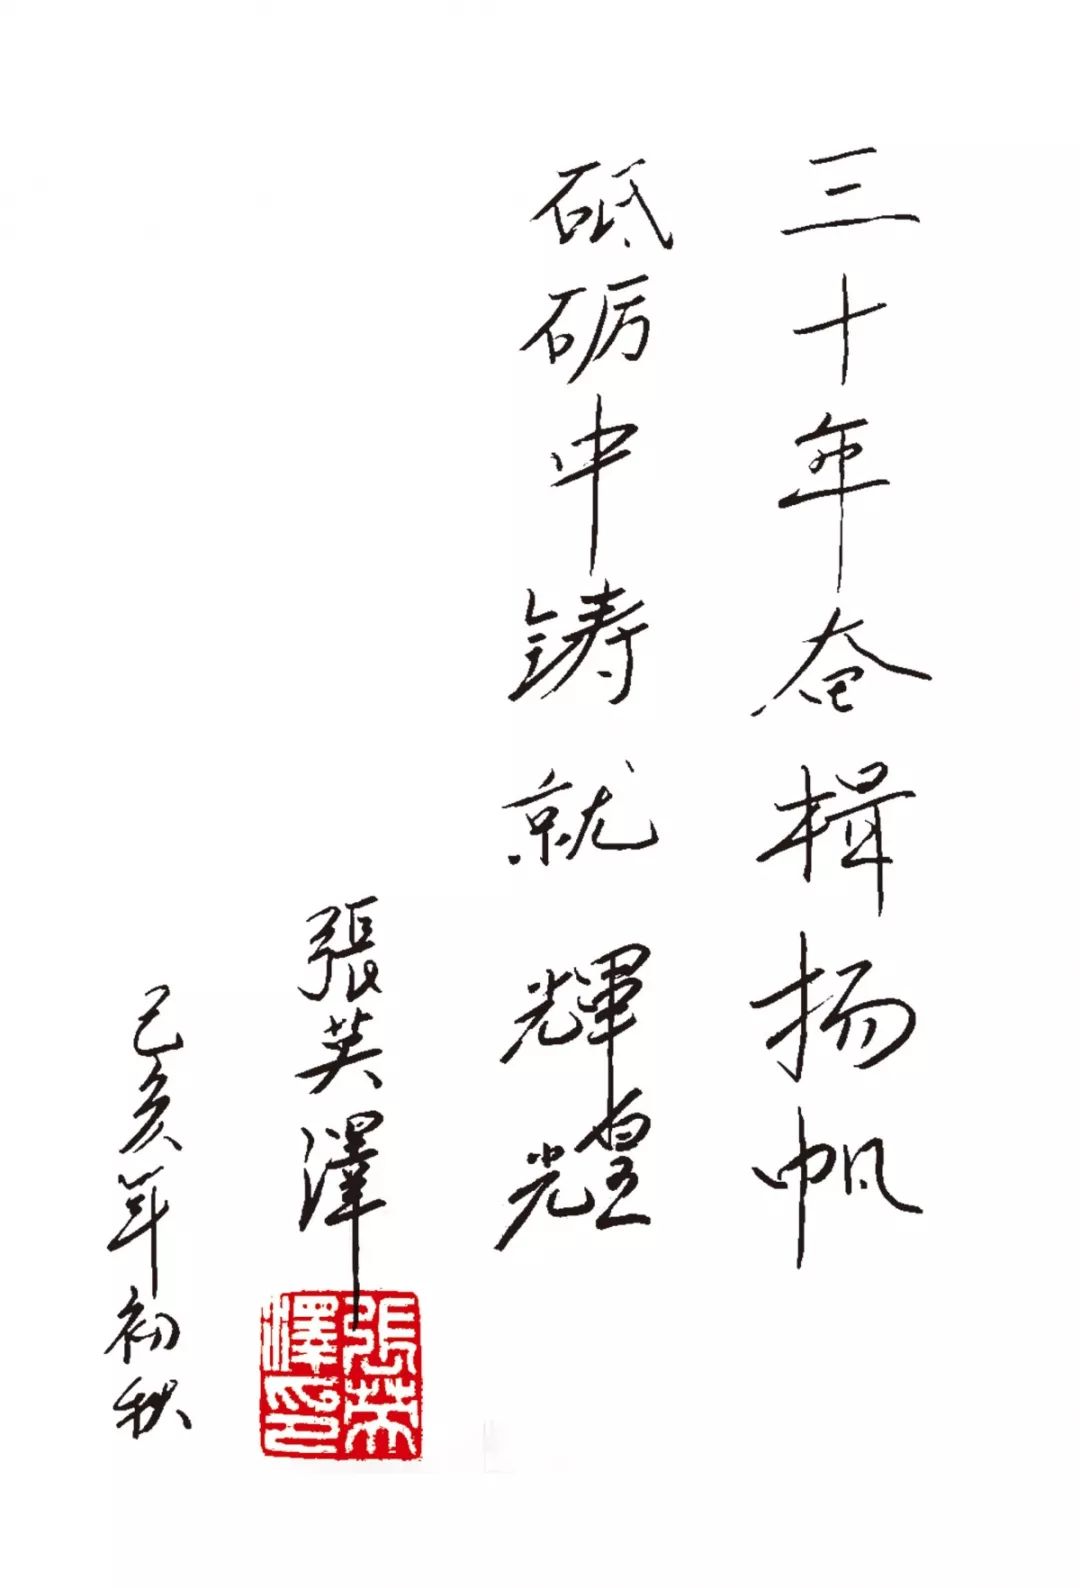 三十年奋楫扬帆
砥砺中铸就輝煌
張英澤
己亥年初秋
張英澤印